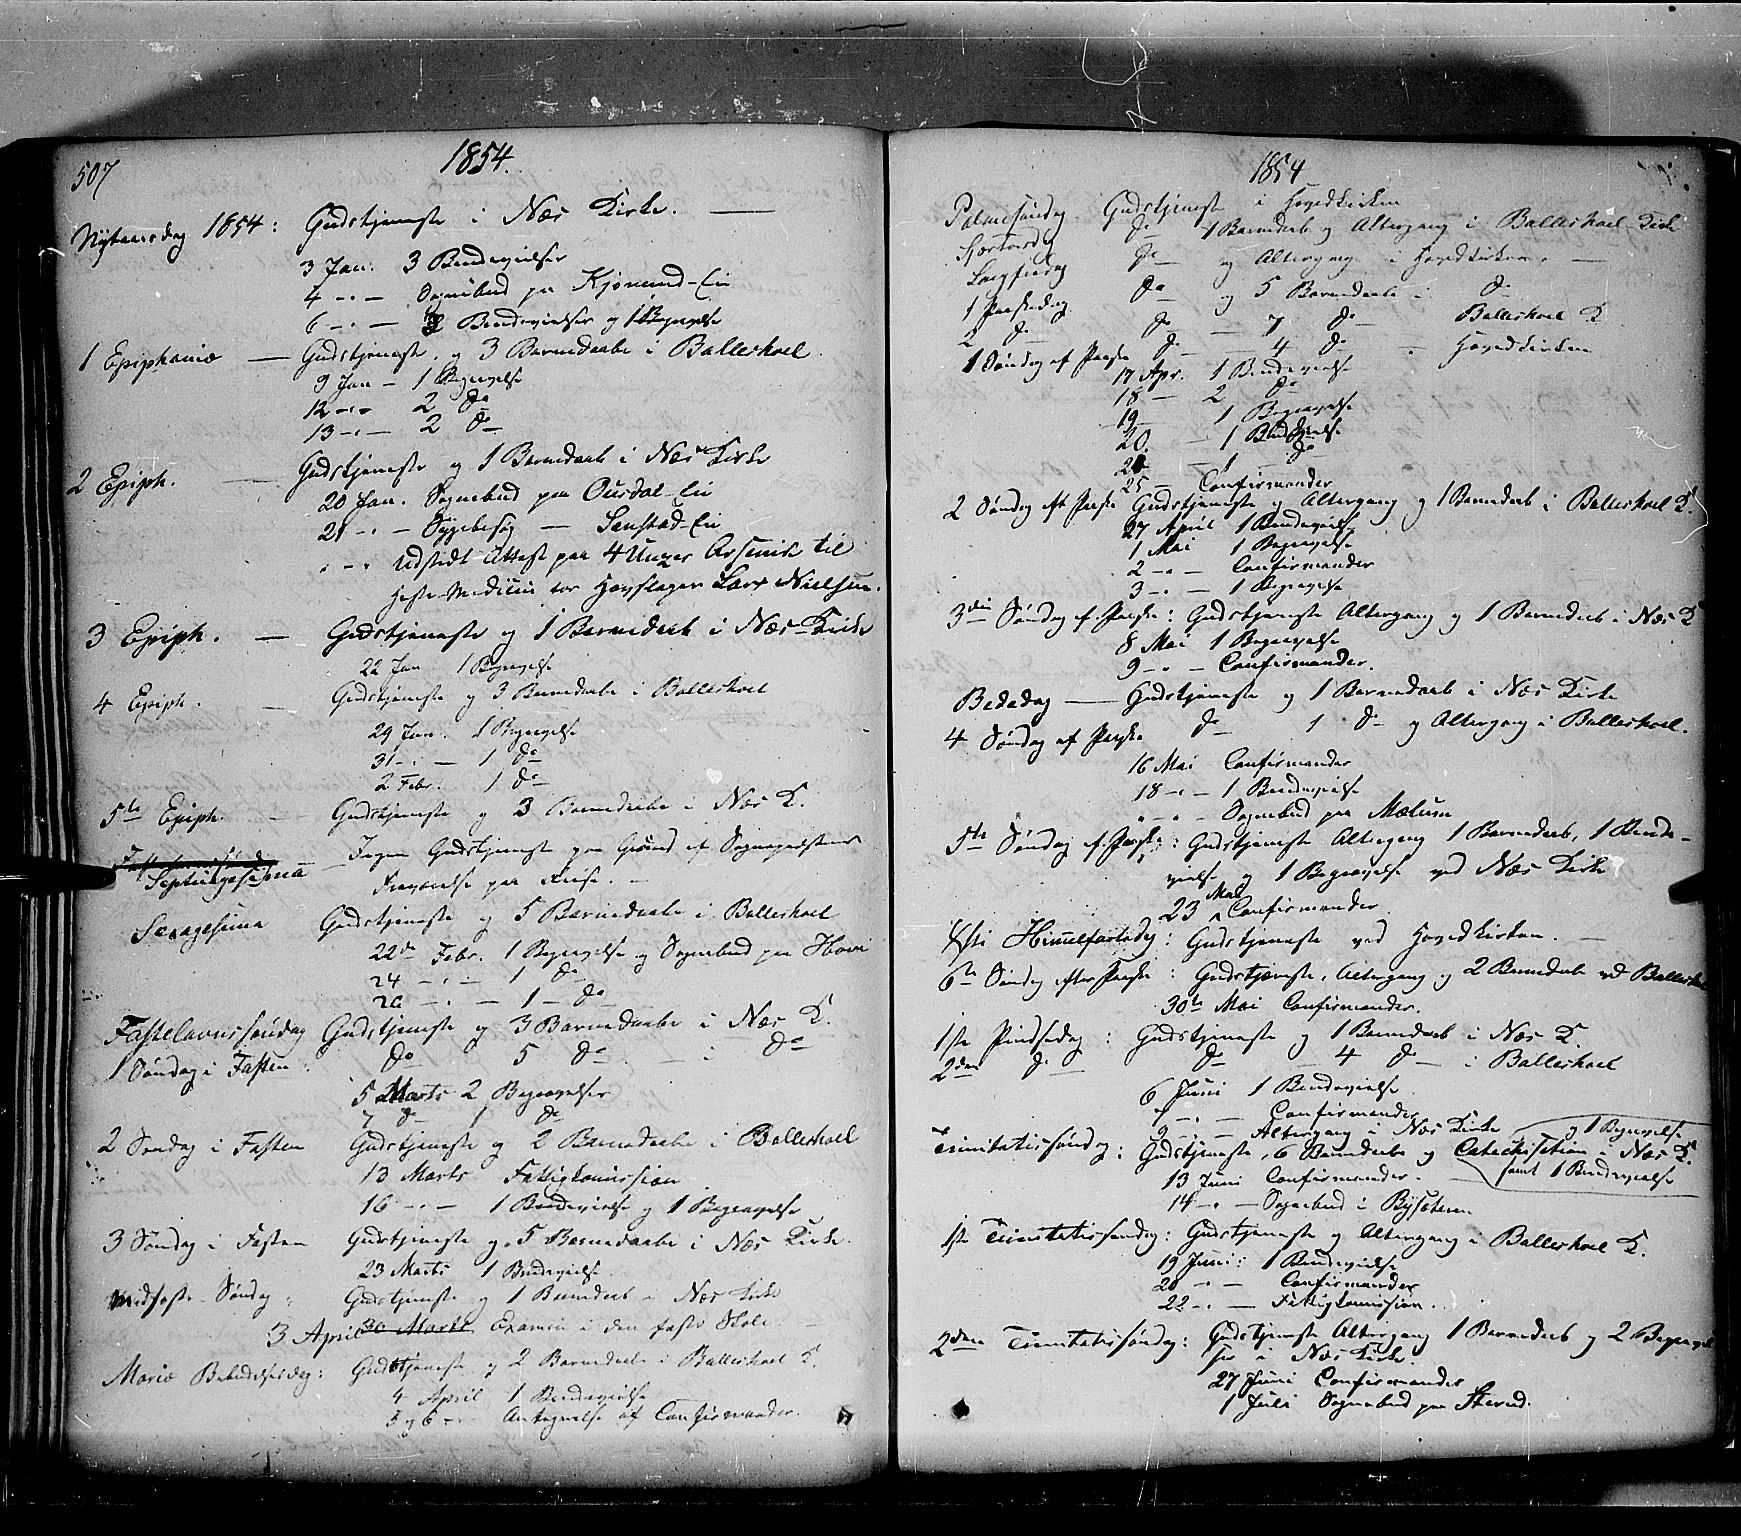 507
1854.
Nytaarsdag 1854: Gudstjeneste i Næs Kirke.
3 Jan. 3 Brudevielser
4 - " - Sognebud paa Kjonerud-Eie
6 - " - 2 Brudevielser og 1 Begravelse
1 Epiphaniæ — Gudstjeneste og 3 Barnedaabe i Ballishoel.
9 Jan - 1 Begravelse
12 - " - 2 do
13 - " - 2 do
2 Epiph. — Gudstjeneste og 1 Barnedaab i Næs Kirke
20 Jan. Sognebud paa Ousdal-Eie
21 - " - Sygebesøg — Senstad-Eie
" - " Udstedt Attest paa 4 Unzer Arsenik til
Heste-Medicin for Hovslager Lars Nielsen.
3 Epiph. — Gudstjeneste og 1 Barnedaab i Næs-Kirke
22 Jan 1 Begravelse
4 Epiph. — Gudstjeneste og 3 Barnedaabe i Ballishoel
29 Jan. 1 Begravelse
31 - " - 1 do
2 Febr. 1 do
5te Epiph. - Gudstjeneste og 3 Barnedaabe i Næs K.
Septuagesima — Ingen Gudstjeneste paa Grund af Sognepræstens
Fraværelse paa Reise. —
Sexagesima Gudstjeneste og 5 Barnedaabe i Ballishoel
22de Febr. 1 Begravelse og Sognebud paa Hovi
24 - " - 1 do
26 - " - 1 - do
Fastelavnssøndag Gudstjeneste og 3 Barnedaabe i Næs K.
1 Søndag i Fasten do 5 do — i do
5 Marts 2 Begravelser
7 do 1 do
2 Søndag i Fasten Gudstjeneste og 2 Barnedaabe i Ballishoel
13 Marts Fattigkomission
16 - " - 1 Brudevielse og 1 Begravelse
3 Søndag i Fasten Gudstjeneste og 5 Barnedaabe i Næs Kirke.
23 Marts 1 Brudevielse
Midfaste-Søndag, Gudstjeneste og 1 Barnedaab i Næs Kirke
3 April 30 Marts Examen i den faste Skole.
Mariæ Bebudelsesdag: Gudstjeneste og 2 Barnedaabe i Ballishoel K.
4 April 1 Brudevielse
5 og 6 - " - Antegnelse af Confirmander.
1854
Palmesøndag. Gudstjeneste i Hovedkirken
Skjærtorsdag do 1 Barnedaab og Altergang i Ballishoel-Kirke
Langfredag do og Altergang i Hovedkirken. —
1 Paaskedag do og 5 Barnedaabe i do
2 do do — 7 do — Ballishoel K
1 Søndag ef Paaske do — 4 do " Hovedkirken
17 Apr. 1 Brudevielse
18 — 2 do
19 — 1 Begravelse
20. — 1 Brudevielse
— 1 do
25 — Confirmander
2 Søndag eft Paaske Gudstjeneste og Altergang og 1 Barnedaab i Ballishoel K.
27 April 1 Brudevielse
1 Mai 1 Begravelse
2 - " - Confirmander
3 - " - 1 Begravelse
3die Søndag ef. Paaske: Gudstjeneste Altergang og 1 Barnedaab i Næs K
8 Mai 1 Begravelse
9 - " - Confirmander.
Bededag — Gudstjeneste og 1 Barnedaab i Næs Kirke
4 Søndag ef Paaske do 1 do og Altergang i Ballishoel.
16 Mai Confirmander
18 - " - 1 Brudevielse
" - " - Sognebud paa Mælum
5te Søndag ef. Paaske: Gudstjeneste Altergang 1 Barnedaab, 1 Brude-
vielse og 1 Begravelse ved Næs Kirke
23 Mai Confirmander
Christi Himmelfartsdag: Gudstjeneste ved Hovedkirken. —
6te Søndag efter Paaske: Gudstjeneste, Altergang og 2 Barnedaab ved Ballishoel
30te Mai Confirmander.
1ste Pindsedag: Gudstjeneste og 1 Barnedaab i Næs K.
2den do do — 4 do — i Ballishoel
6 Juni 1 Brudevielse
7 - " - Confirmander
9 - " - Altergang i Næs Kirke
Trinitatissøndag: Gudstjeneste, 6 Barnedaabe og Catechisation i Næs K. og 1 Begravelse samt 1 Brudevielse
13 Juni Confirmander.
14 - " - Sognebud i Bysæteren
1ste Trinitatissøndag: Gudstjeneste og Altergang i Ballishoel K.
19 Juni: 1 Brudevielse
20 - " - Confirmander
22 - " - Fattigkomission.
2den Trinitatissøndag: Gudstjeneste Altergang 1 Barnedaab og 2 Begravel
ser i Næs Kirke.
27 Juni Confirmander
1 Juli Sognebud paa Sterud.